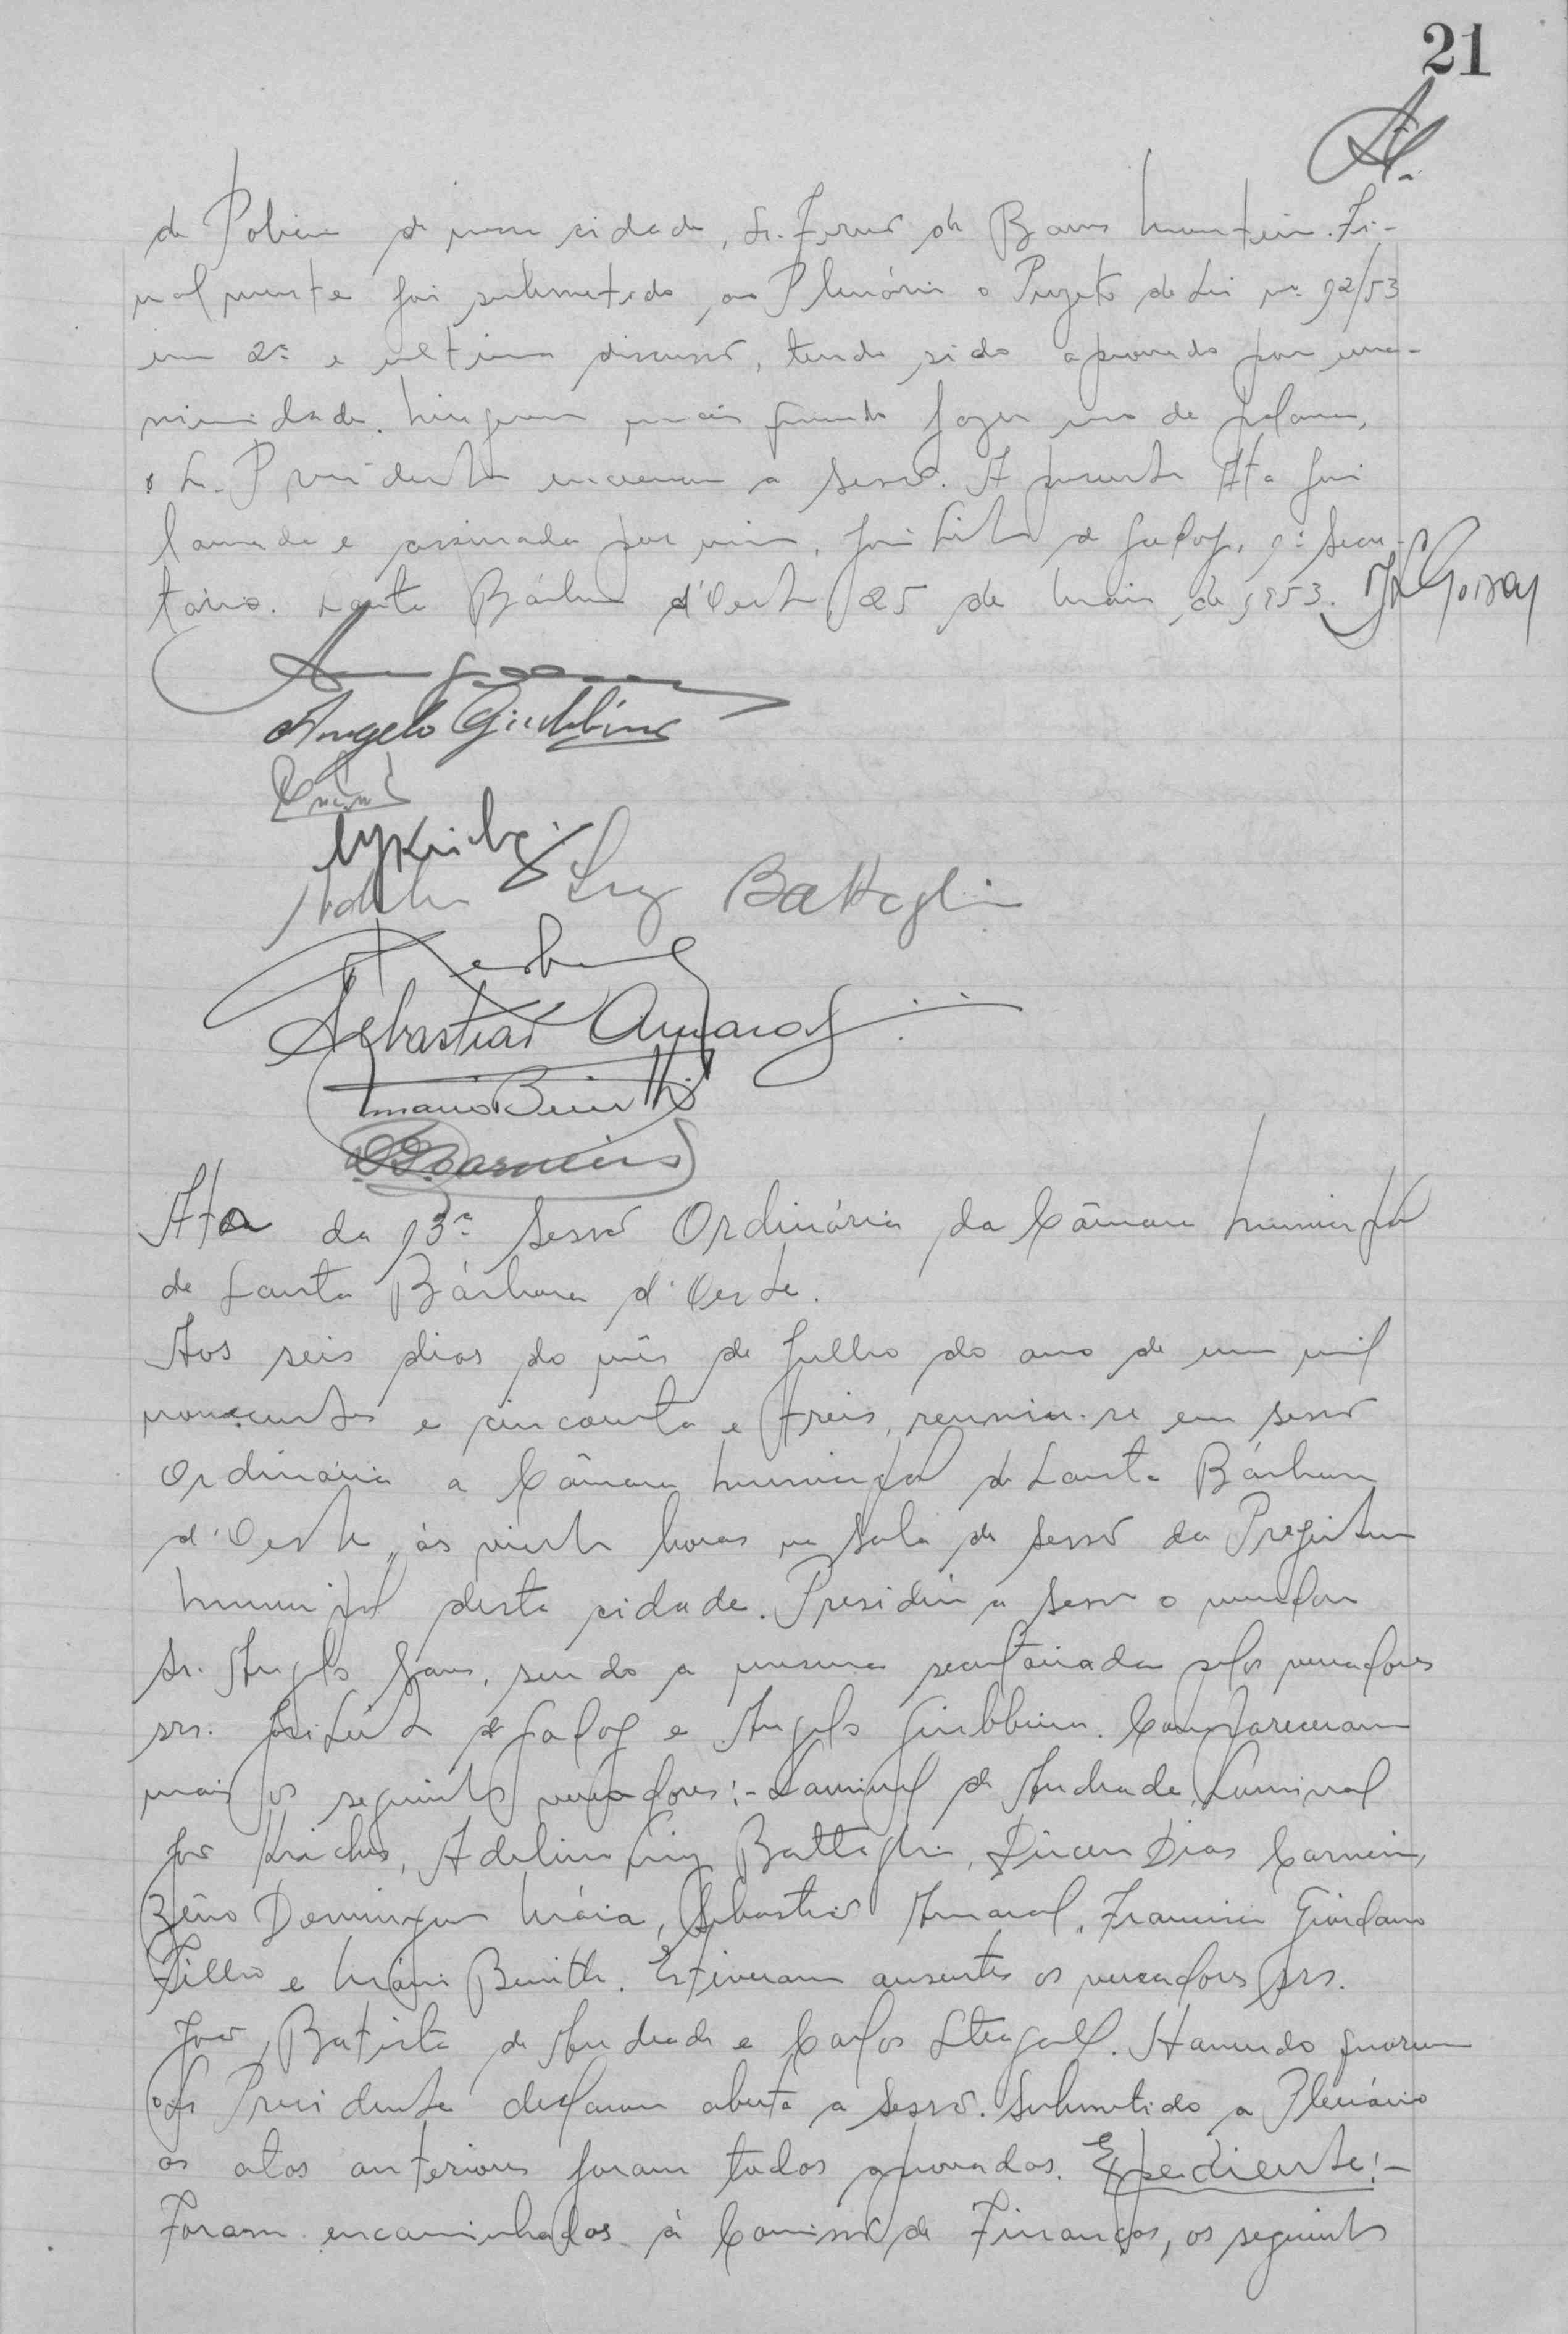 21
de Policia de nossa cidade, Sr. Ferraz de Barros Monteiro. Fi-
nalmente foi submetido ao Plenário o Projeto de Lei nº 92/53
em 2ª e ultima discussão, tendo sido aprovado por una-
nimidade. Ninguem mais querendo fazer uso da palavra,
o Sr. Presidente encerrou a sessão. A presente Ata foi
lavrada e assinada por mim, José Leite de Godoy, 1º Secre-
tário. Santa Bárbara d'Oeste 25 de Maio de 1953.
Angelo Giubbina
Luiz Battaglia
Sebastião Amaral
Mario Benitti
Ata da 13ª Sessão Ordinária da Câmara Municipal
de Santa Bárbara d'Oeste.
Aos seis dias do mês de Julho do ano de um mil
novecentos e cincoenta e treis, reuniu-se em sessão
Ordinária a Câmara Municipal de Santa Bárbara
d'Oeste, às vinte horas na Sala de Sessão da Prefeitura
Municipal desta cidade. Presidiu a sessão o vereador
Sr. Angelo, sendo a mesma secretariada pelos vereadores
srs. José Leite de Godoy e Angelo Giubbina. Compareceram
mais os seguintes vereadores:- de Andrade,
José, Adelino Luiz Battaglia, Dirceu Dias Carneiro,
Zéno Domingues Maia, Sebastião Amaral, Francisco Giordano
Filho e Mário Benitti. Estiveram ausentes os vereadores srs.
João Batista de Andrade e Carlos Steagall. Havendo quorum
o Sr. Presidente declarou aberta a sessão. Submetido a Plenário
as atas anteriores foram todas aprovadas. Expediente:-
Foram encaminhados à Comissão de Finanças, os seguintes